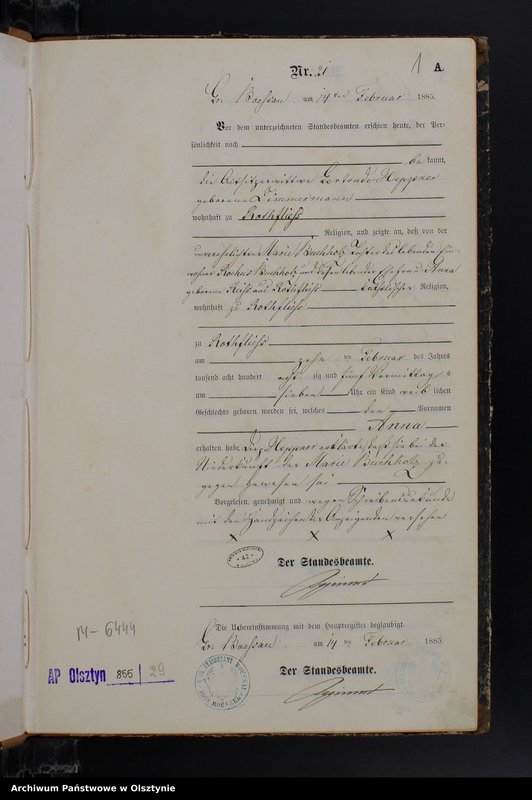 Nr. 21
1 A.
Gr. Boessau am 14ten Februar 1885.
Vor dem unterzeichneten Standesbeamten erschien heute, der Per-
sönlichkeit nach
be kannt,
die Altsitzerwittwe Gertrude Heppner
geborene Zimmermann
wohnhaft zu Rothfließ
Religion, und zeigte an, daß von der
unverehelichten Marie Buchholz, Tochter des lebenden Ein-
wohner Rochus Buchholz und lebenden Ehefrau Anna
geborene aus Rothfließ katholischer Religion,
wohnhaft zu Rothfließ
zu Rothfließ
am zehn ten Februar des Jahres
tausend acht hundert acht zig und fünf Vormittag s
um sieben Uhr ein Kind weib lichen
Geschlechts geboren worden sei, welches den Vornamen
Anna
erhalten habe. Die Heppner erklärte, daß sie bei der
Niederkunft der Marie Buchholz zu-
gegen gewesen sei
Vorgelesen, genehmigt und wegen Schreibensunkunde
mit den Handzeichen der Anzeigenden versehen
x x x
Der Standesbeamte.
Die Uebereinstimmung mit dem Hauptregister beglaubigt.
Gr. Boessau am 14 ten Februar 1885.
Der Standesbeamte.
M-6444
AP Olsztyn 855 / 29
Archiwum Państwowe w Olsztynie